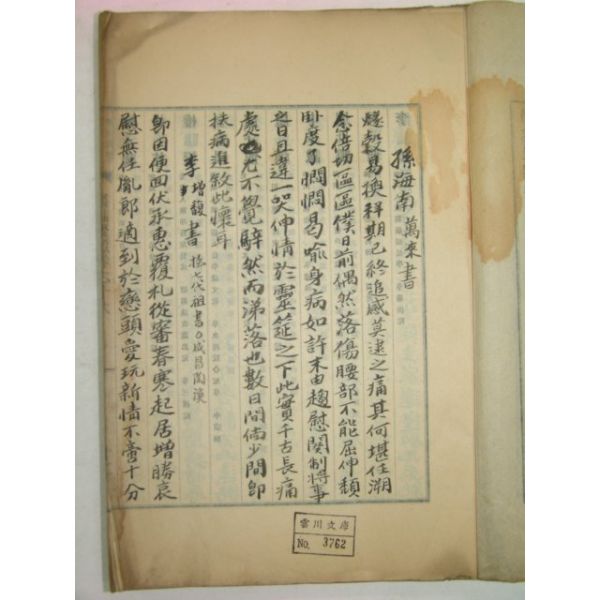 孫海南萬來書
燧穀易換祥期已終追感莫逮之痛其何堪任溯
念倍切區區僕日前偶然落傷腰部不能屈伸頹
臥度了憫憫曷喩身病如許末由趨慰関制將事
之日且違一哭伸情於靈筵之下此實千古長痛
處也尤不覺騂然而涕落也數日間倘少間卽
扶病進敘此懷耳
李增馥書 七代祖書
卽因便面伏承惠覆札從審春寒起居增勝哀
慰無任胤郎適到於戀頭愛玩新情不啻十分
雲川文庫
No. 3762